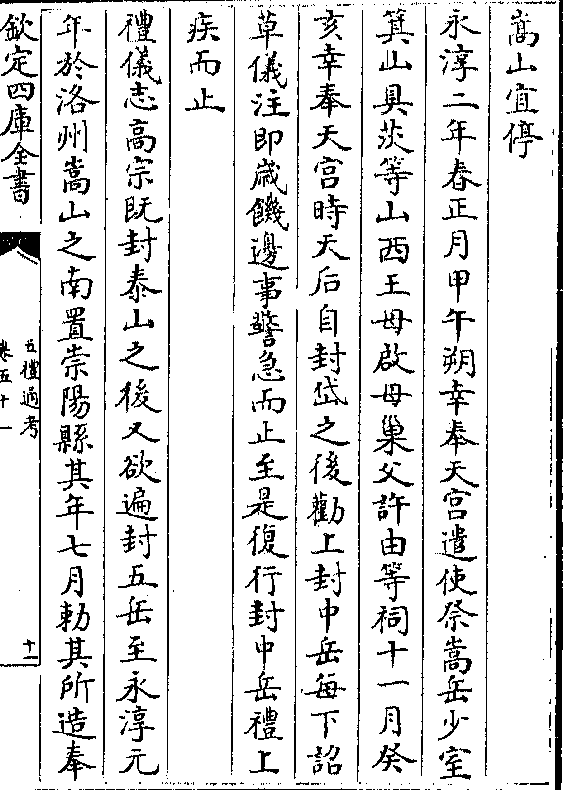 嵩山宜停
永淳二年春正月甲午朔幸奉天宮遣使祭嵩岳少室
箕山具茨等山西王母啟母巢父許由等祠十一月癸
亥幸奉天宫時天后自封岱之後勸上封中岳每下詔
草儀注即歲饑邊事警急而止至是復行封中岳禮上
疾而止
禮儀志高宗既封泰山之後又欲遍封五岳至永淳元
年於洛州嵩山之南置崇陽縣其年七月勅其所造奉
欽定四庫全書
五禮通考
卷五十一
十一